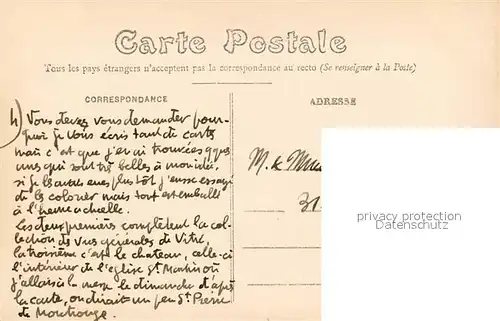 Carte Postale
Tous les pays étrangers n'acceptent pas la correspondance au recto (Se renseigner à la Poste)
CORRESPONDANCE
ADRESSE
4) Vous devez vous demander pour-
quoi je vous écris tant de cartes
mais c'est que j'en ai trouvées qques
unes qui sont très belles à mon idée,
si je les avais eues plus tôt j'eusse essayé
de les colorier mais tout est emballé
à l'heure actuelle.
Les deux premières complètent la col-
lection des vues générales de Vitré,
la troisième c'est le chateau, celle-ci
l'intérieur de l'église St Martin où
j'allais à la messe le dimanche d'après
la carte, on dirait un peu St Pierre
de Montrouge.
M. &
31
privacy protection
Datenschutz